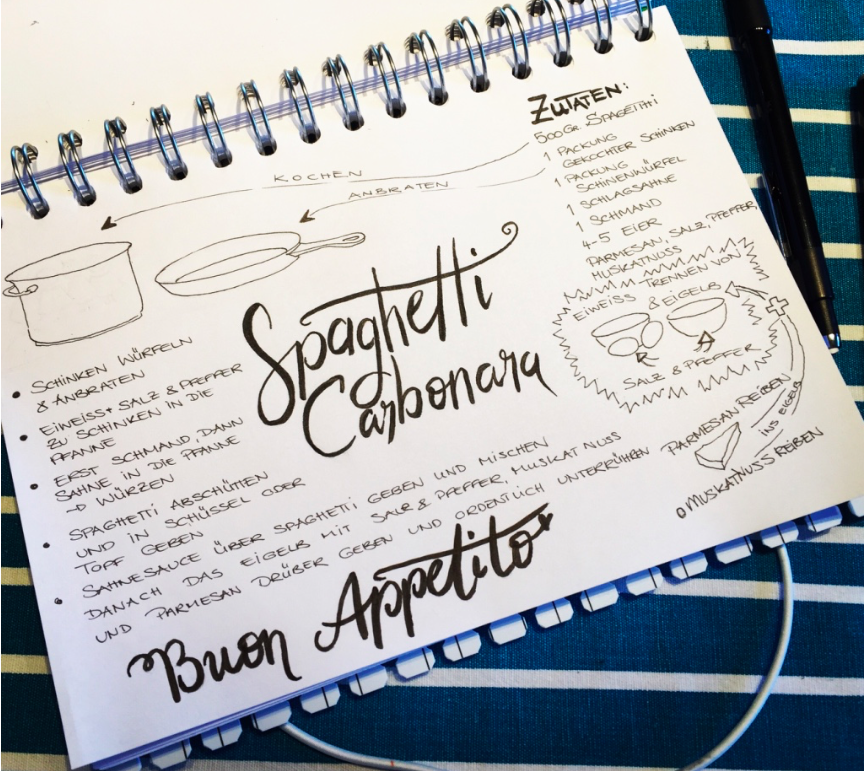 ZUTATEN:
500GR SPAGETTHI
1 PACKUNG
GEKOCHTER SCHINKEN
1 PACKUNG
SCHINKENWÜRFEL
1 SCHLAGSAHNE
1 SCHMAND
4-5 EIER
PARMESAN, SALZ, PFEFFER,
MUSKATNUSS
KOCHEN
ANBRATEN
TRENNEN VON
EIWEISS & EIGELB
SALZ & PFEFFER
PARMESAN REIBEN
INS EIGELB
MUSKATNUSS REIBEN
Spaghetti
Carbonara
• SCHINKEN WÜRFELN
& ANBRATEN
• EIWEISS + SALZ & PFEFFER
ZU SCHINKEN IN DIE
PFANNE
• ERST SCHMAND, DANN
SAHNE IN DIE PFANNE
→ WÜRZEN
• SPAGHETTI ABSCHÜTTEN
UND IN SCHÜSSEL ODER
TOPF GEBEN
• SAHNESAUCE ÜBER SPAGHETTI GEBEN UND MISCHEN
DANACH DAS EIGELB MIT SALZ & PFEFFER, MUSKATNUSS
UND PARMESAN DRÜBER GEBEN UND ORDENTLICH UNTERRÜHREN
Buon Appetito